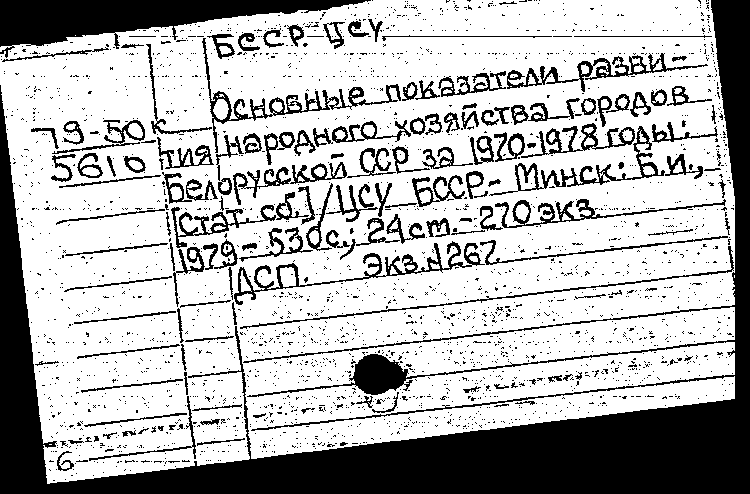 БССР. ЦСУ.
Основные показатели разви-
79-50к
тия народного хозяйства городов
5610
Белорусской ССР за 1970-1978 годы:
[Стат. сб.]/ЦСУ БССР.- Минск: Б.и.,
1979.- 530с.; 24 ст.- 270 экз.
ДСП. Экз.№267.
6